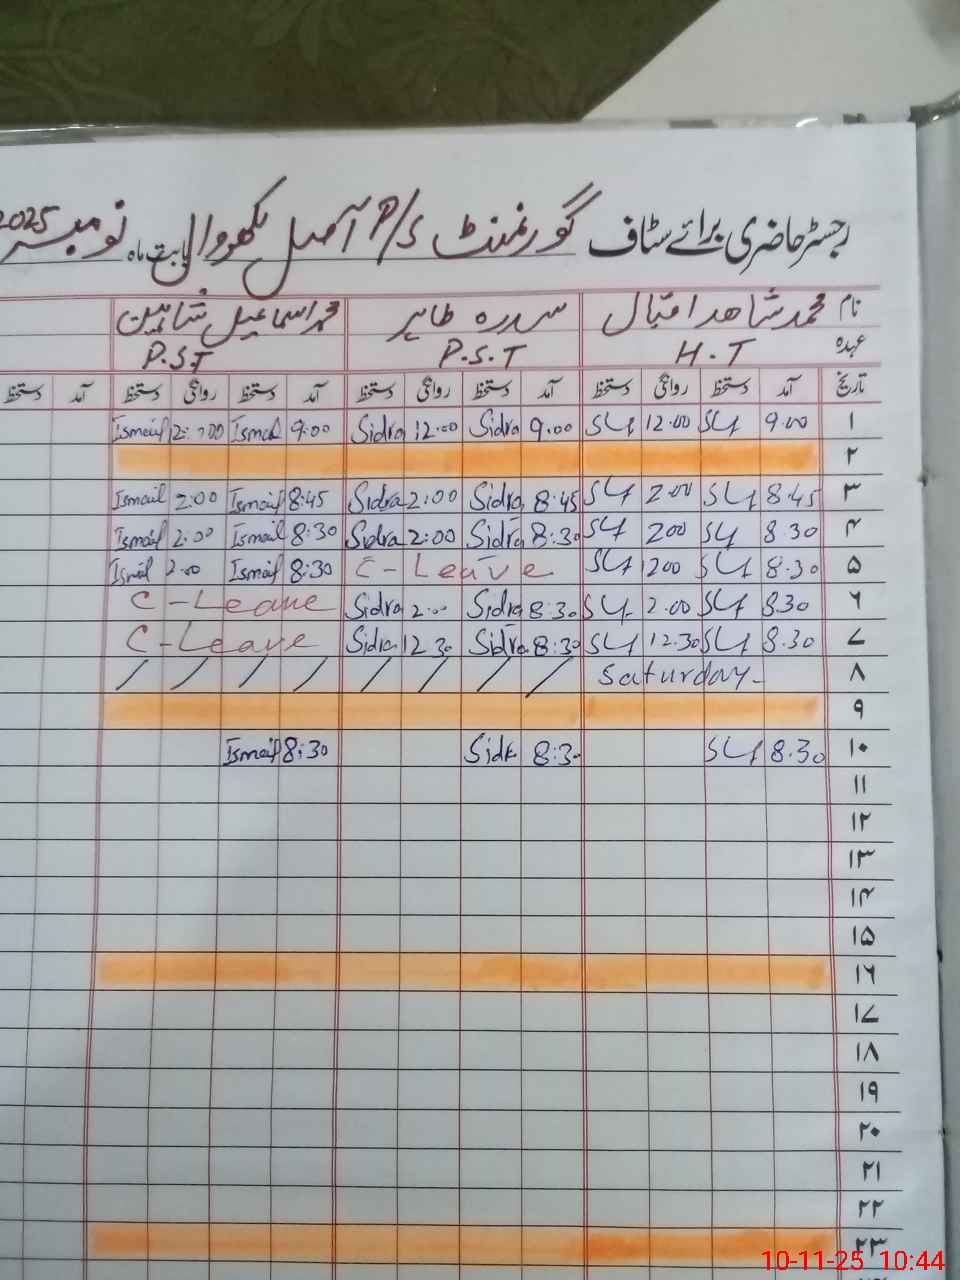 رجسٹر حاضری برائے سٹاف گورنمنٹ P/S آصل لکھووال بابت ماہ نومبر 2025
نام محمد شاھد اقبال سدرہ طاہر محمد اسماعیل شاہین
عہدہ H.T P.S.T P.S.T
تاریخ آمد دستخط روانگی دستخط آمد دستخط روانگی دستخط آمد دستخط روانگی دستخط آمد دستخط
۱ 9.00 12.00 9.00 Sidra 12.00 Sidra 9:00 Ismail 12:00 Ismail
۲
۳ 8.45 2.00 8:45 Sidra 2:00 Sidra 8:45 Ismail 2:00 Ismail
۴ 8.30 200 8:30 Sidra 2:00 Sidra 8:30 Ismail 2:00 Ismail
۵ 8.30 1200 C-Leave 8:30 Ismail 2.00 Ismil
۶ 8.30 2.00 8:30 Sidra 2.00 Sidra C-Leave
۷ 8.30 12.30 8:30 Sidra 12 30 Sidra C-Leave
۸ Saturday- / / / / / / / /
۹
۱۰ 8.30 8:30 Sidr 8:30 Ismail
۱۱
۱۲
۱۳
۱۴
۱۵
۱۶
۱۷
۱۸
۱۹
۲۰
۲۱
۲۲
۲۳
10-11-25 10:44